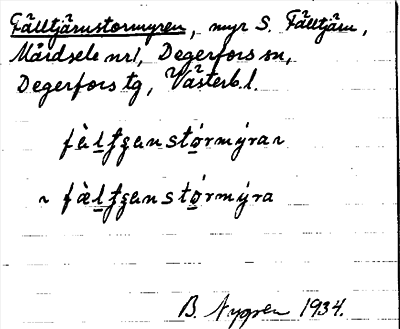 Fälltjärnstormyren, myr S. Fälltjärn,
Mårdsele nr 1, Degerfors sn,
Degerfors tg, Västerb. l.
fàltʃanstórmýran
~ fàltʃanstórmýra
B. Nygren 1934.